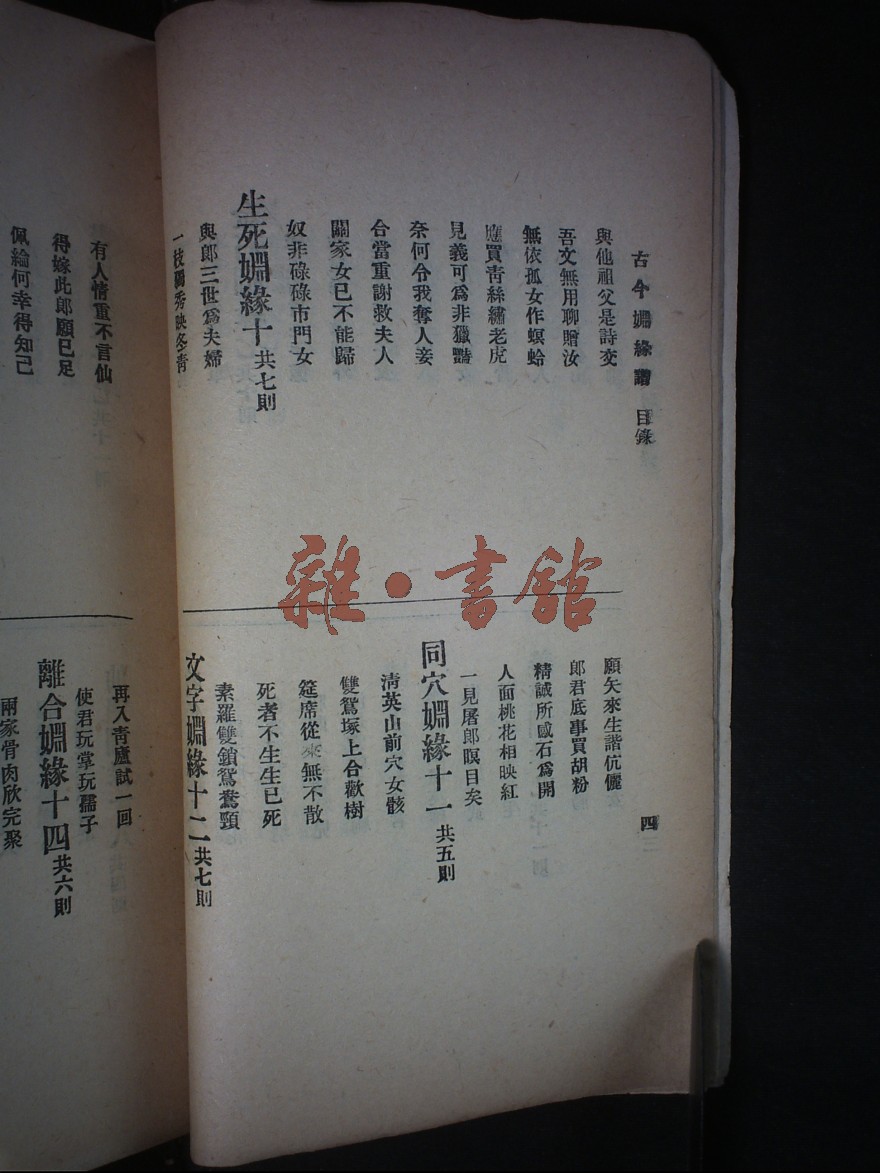 古今婣緣譜 目錄
四
與他祖父是詩交
吾文無用聊贈汝
無依孤女作螟蛉
應買青絲繡老虎
見義可為非獵豔
奈何令我奪人妾
合當重謝救夫人
關家女已不能歸
奴非碌碌市門女
生死婣緣十 共七則
與郎三世為夫婦
一枝獨秀映冬青
願矢來生諧伉儷
郎君底事買胡粉
精誠所感石為開
人面桃花相映紅
一見屠郎瞑目矣
同穴婣緣十一 共五則
清英山前穴女骸
雙鴛塚上合歡樹
筵席從來無不散
死者不生生已死
素羅雙鎖鴛鴦頸
文字婣緣十二 共七則
有人情重不言仙
得嫁此郎願已足
佩綸何幸得知己
再入青廬試一回
使君玩掌玩孺子
離合婣緣十四 共六則
兩家骨肉欣完聚
雜·書館